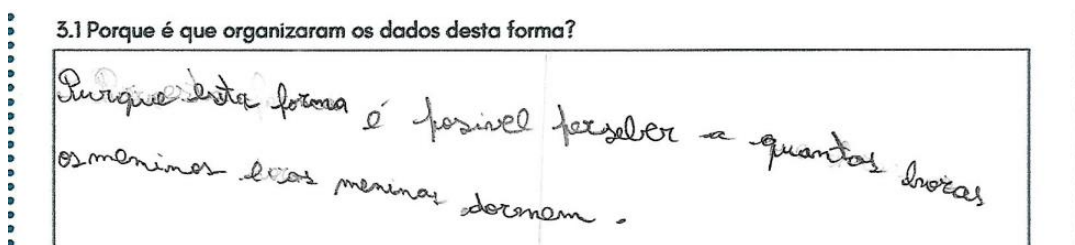 3.1 Porque é que organizaram os dados desta forma?
Purque esta forma é posivel perseber a quantas horas
os meninos e as meninas dormem.